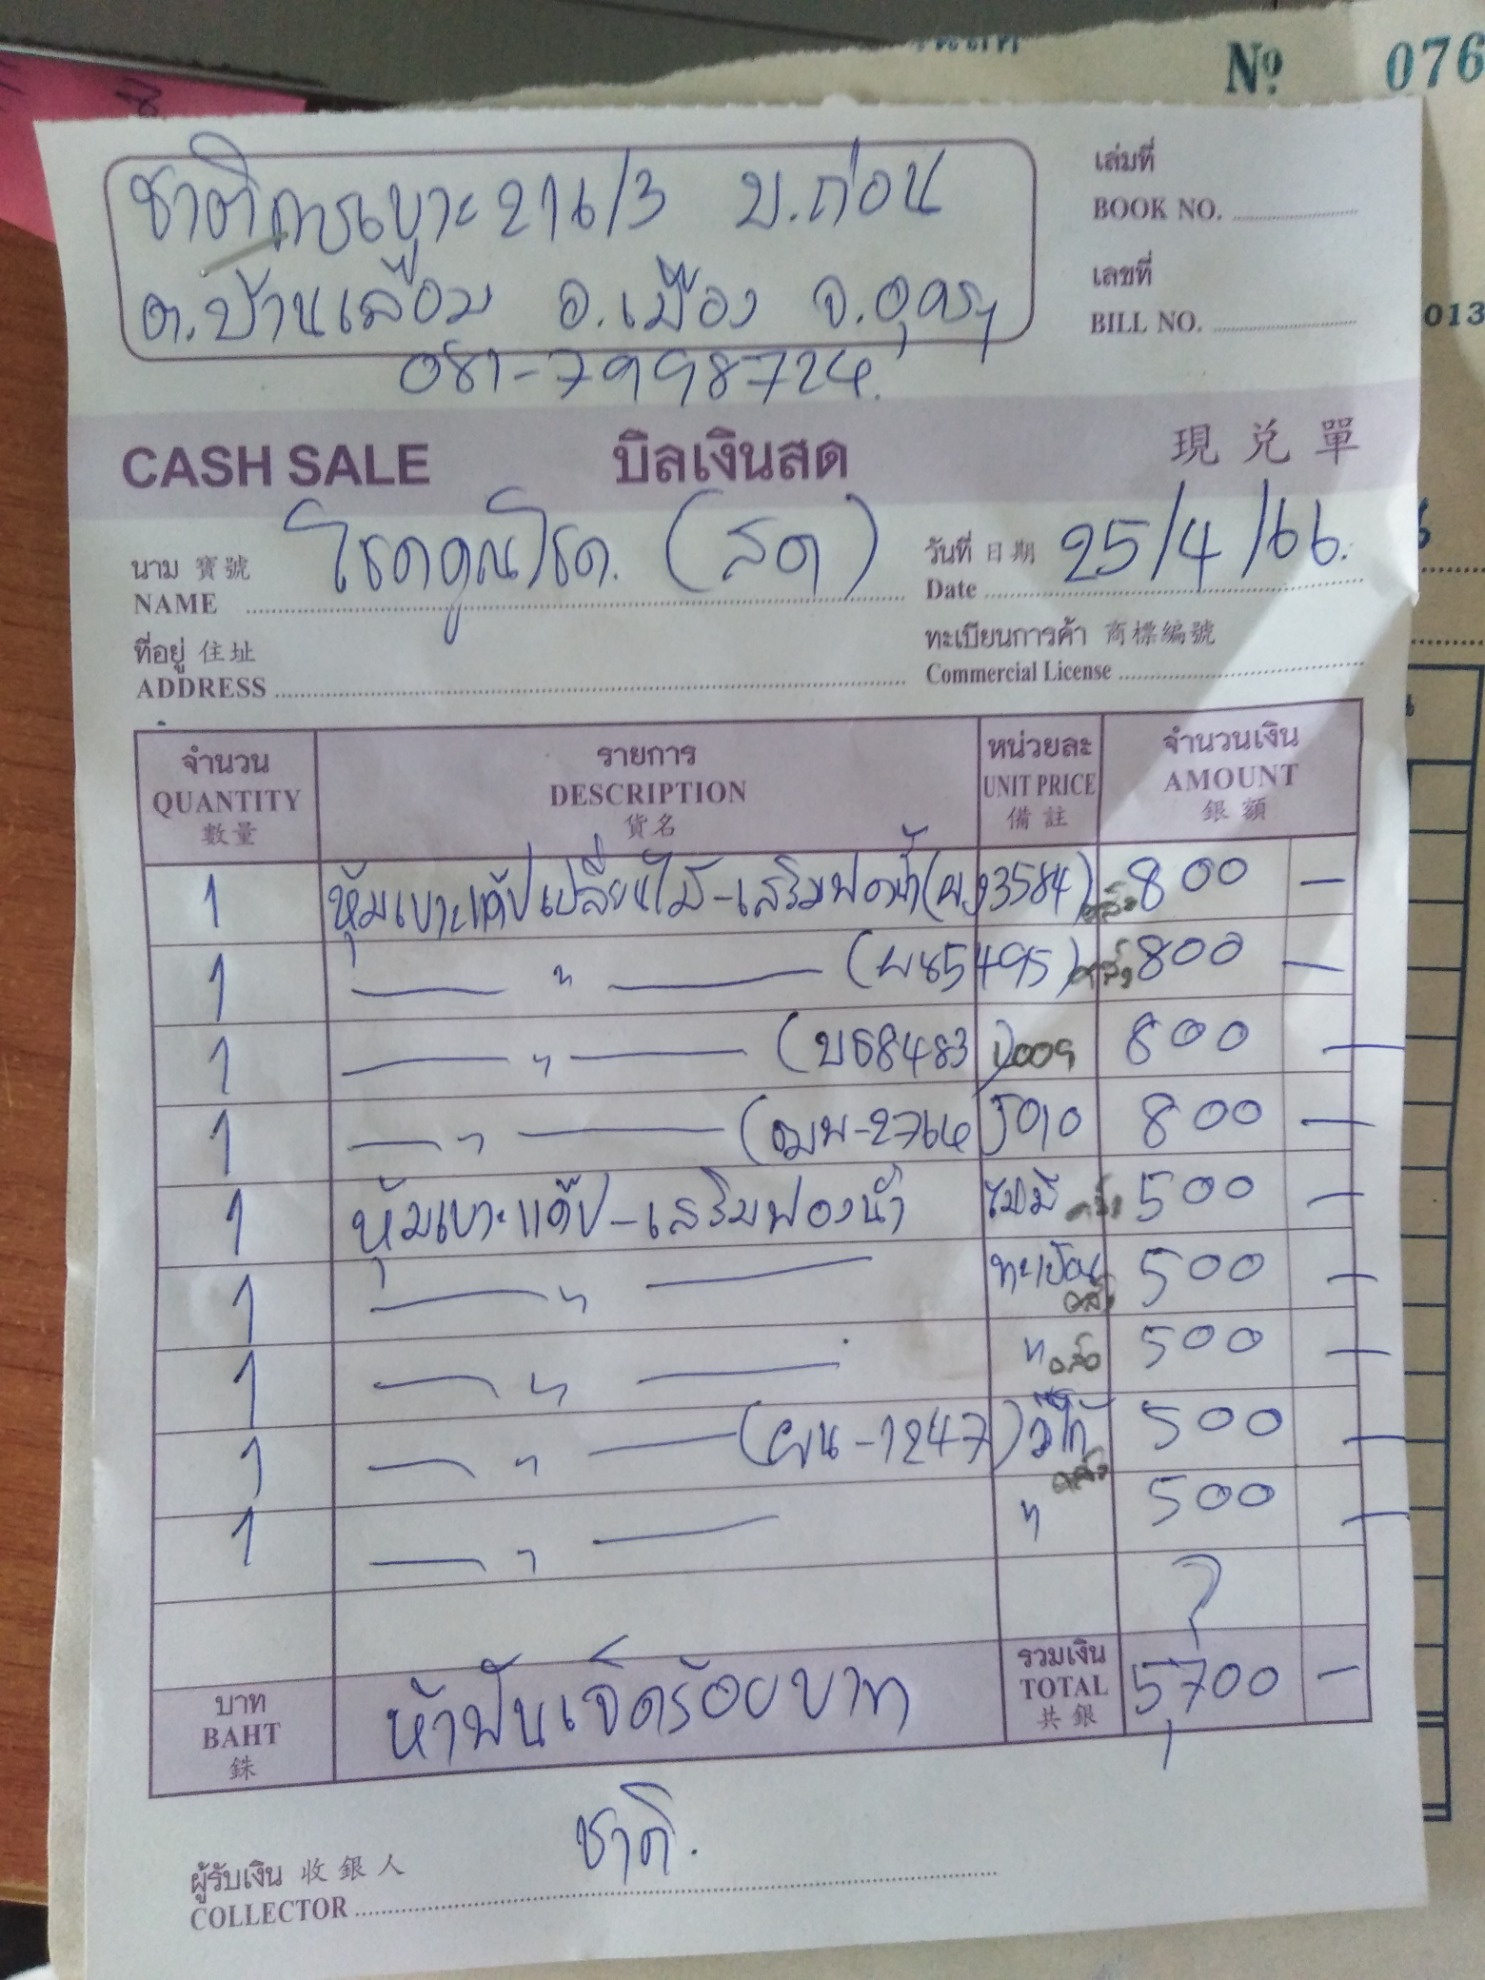 Nº 076
ชาติการเบาะ 216/3 บ.ก่อน
ต.บ้านเลื่อม อ.เมือง จ.อุดรฯ
081-7998724.
เล่มที่
BOOK NO.
เลขที่
BILL NO.
013
CASH SALE บิลเงินสด 現兑單
นาม 寶號 โชคคูณโชค. (สด) วันที่ 日期 25/4/66.
NAME Date
ที่อยู่ 住址 ทะเบียนการค้า 商標編號
ADDRESS Commercial License
จำนวน รายการ หน่วยละ จำนวนเงิน
QUANTITY DESCRIPTION UNIT PRICE AMOUNT
數量 貨名 備註 銀額
1 หุ้มเบาะแค๊ปเปลี่ยนไม้-เสริมฟองน้ำ 3584) 800 —
1 — " — 85495) 800 —
1 — " — (บธ8483) 800 —
1 — " — 2764 5010 800 —
1 หุ้มเบาะแค๊ป-เสริมฟองน้ำ ไม่มี 500 —
1 — " — ทะเบียน 500 —
1 — " — " 500 —
1 — " — (ผน-1247) 500 —
1 — " — " 500 —
บาท ห้าพันเจ็ดร้อยบาท รวมเงิน 5,700 —
BAHT TOTAL
銖 共銀
ชาติ.
ผู้รับเงิน 收銀人
COLLECTOR